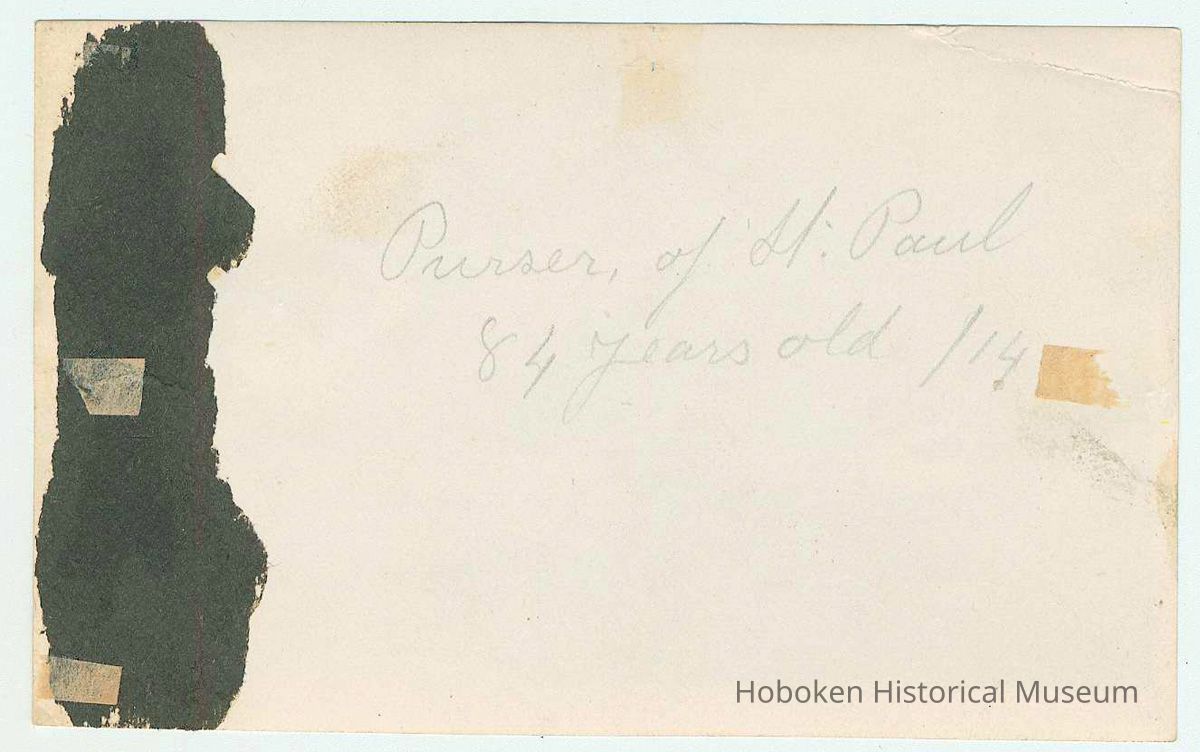 Purser, of St. Paul
84 years old /14
Hoboken Historical Museum